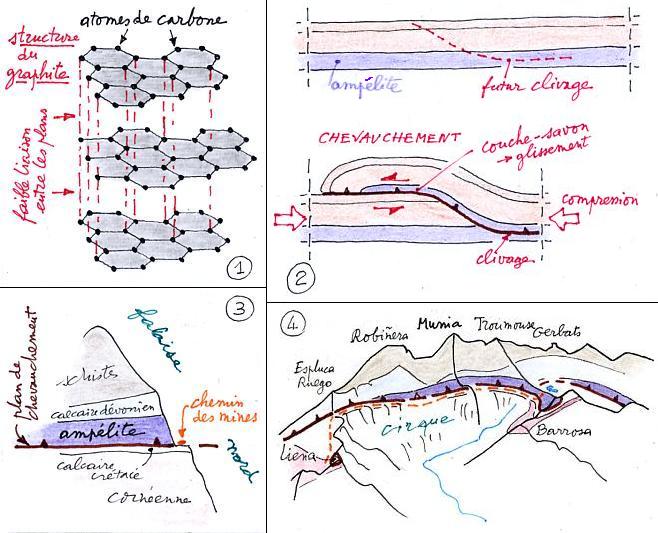 atomes de carbone
structure
du
graphite
faible liaison
entre les plans
1
ampélite
futur clivage
CHEVAUCHEMENT
couche-savon
→ glissement
compression
clivage
2
3
falaise
plan de
chevauchement
schistes
calcaire dévonien
ampélite
chemin
des mines
nord
calcaire
crétacé
cornéenne
4
Robiñera
Munia
Troumouse
Gerbats
Espluca
Ruego
cirque
Liena
Barrosa